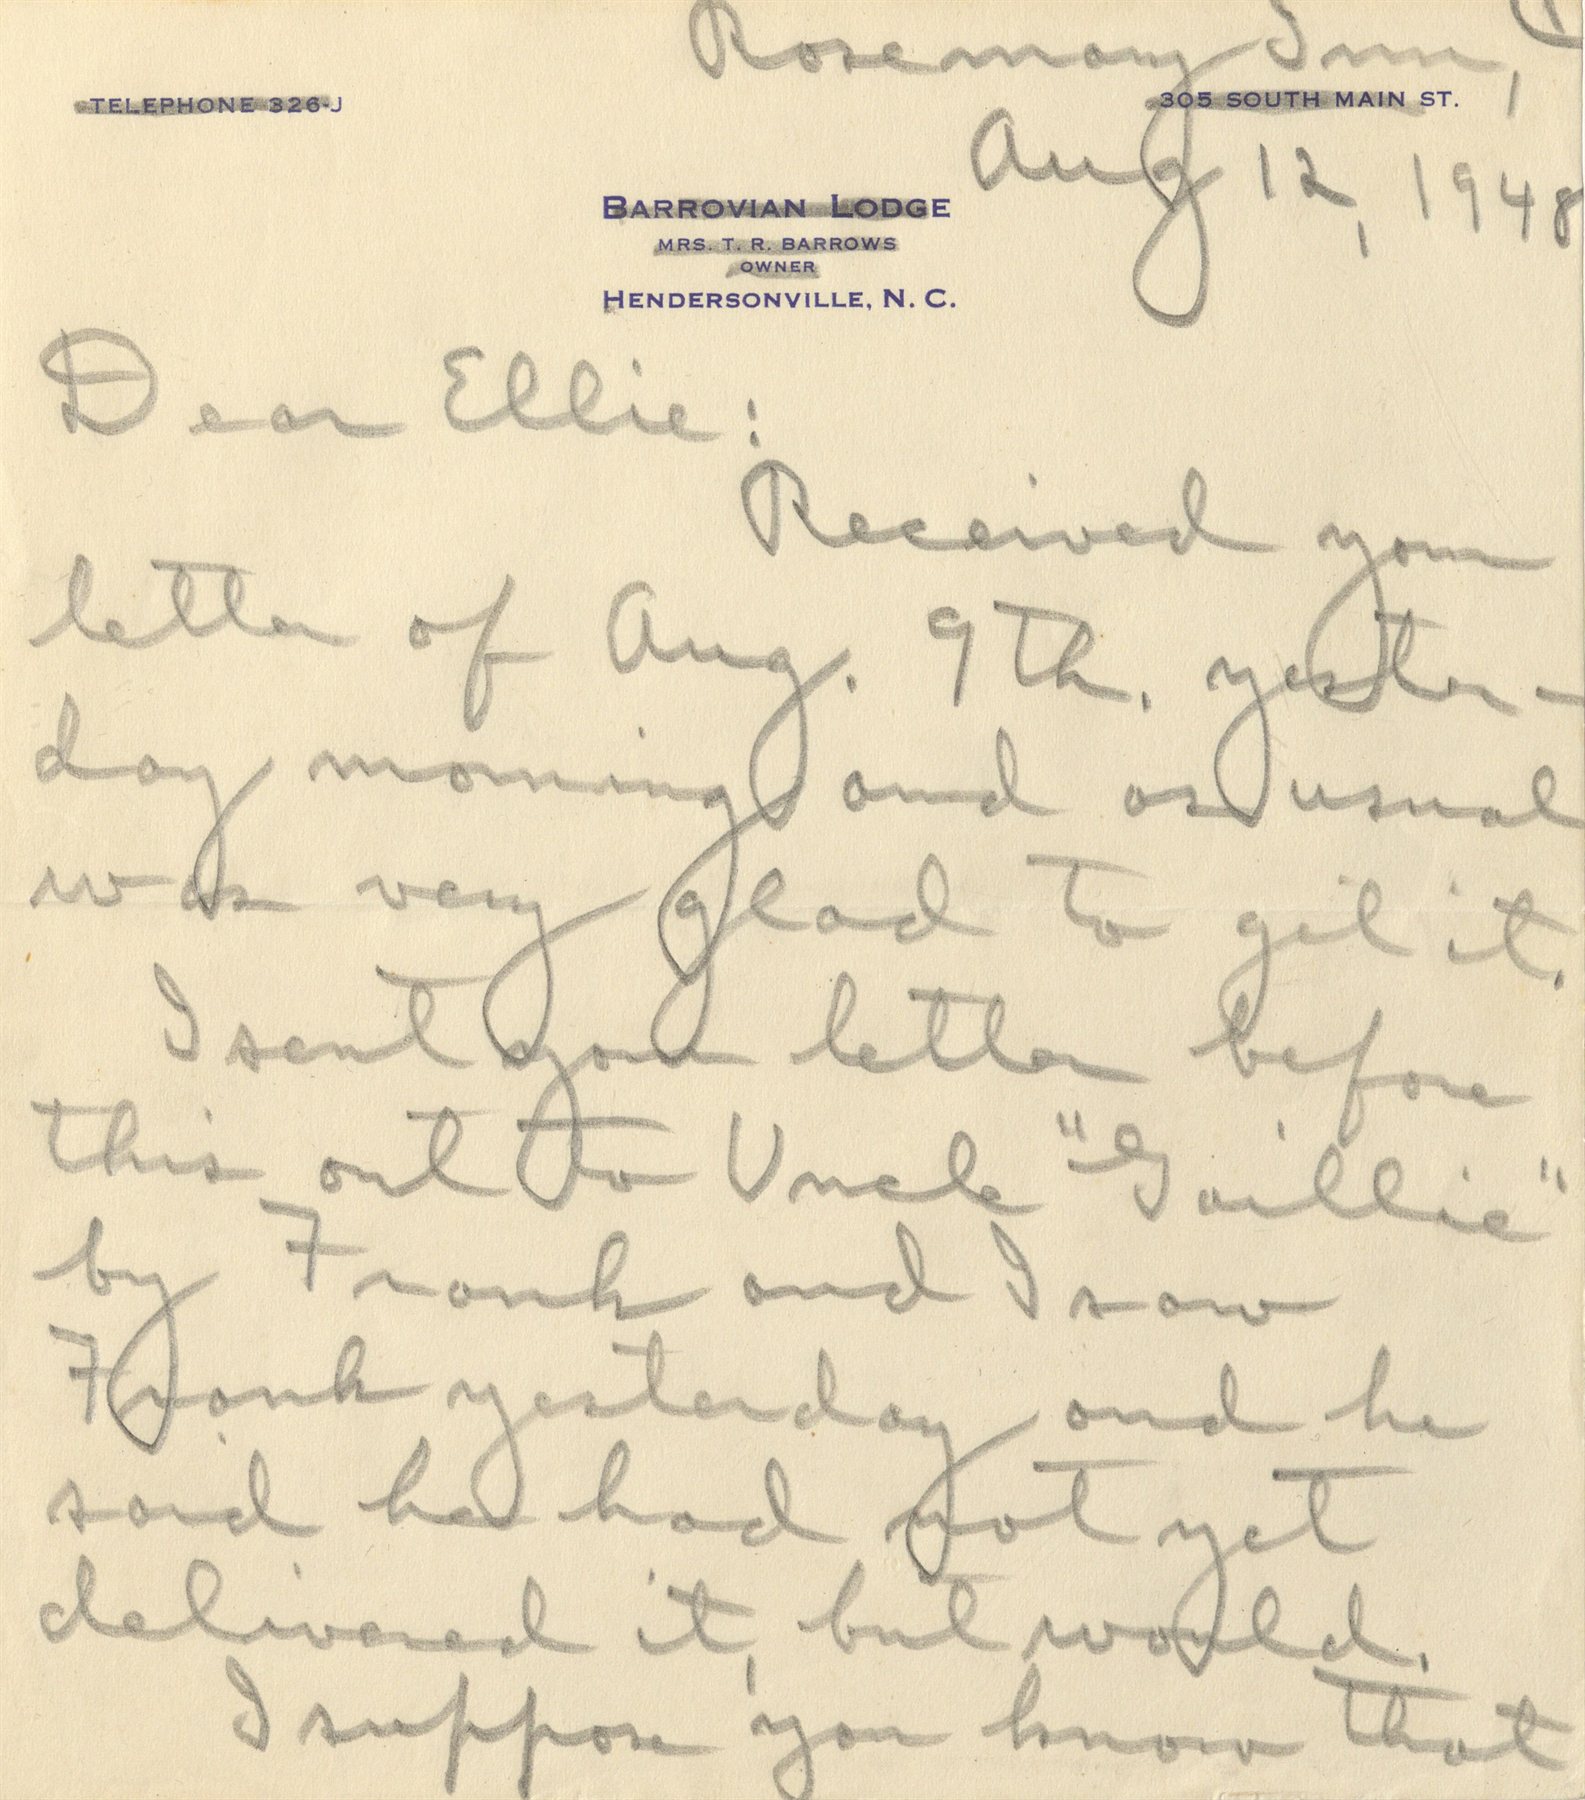 Rosemary Inn,
TELEPHONE 326-J
305 SOUTH MAIN ST.
Aug 12, 1948
BARROVIAN LODGE
MRS. T. R. BARROWS
OWNER
HENDERSONVILLE, N. C.
Dear Ellie:
Received your
letter of Aug. 9th. yester-
day morning and as usual
was very glad to get it.
I sent your letter before
this out to Uncle "Gaillie"
by Frank and I saw
Frank yesterday and he
said he had not yet
delivered it, but would.
I suppose you know that